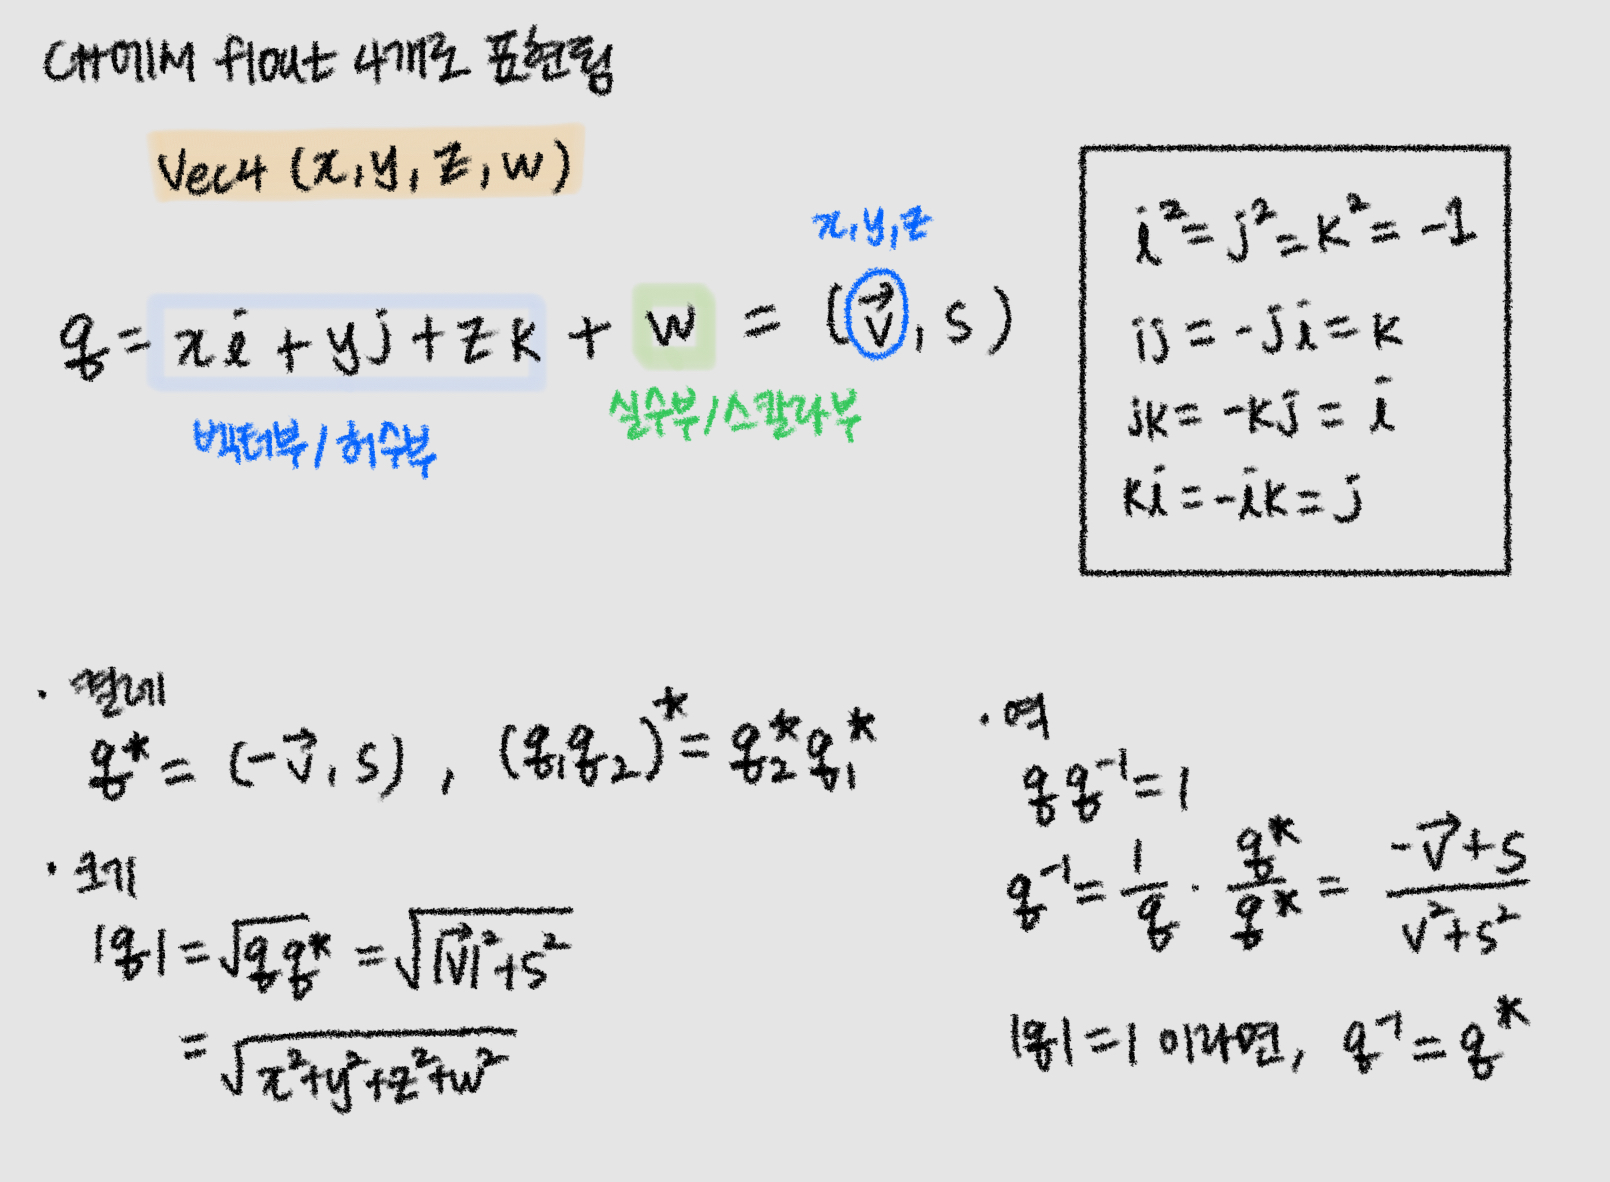 C++에서 float 4개로 표현됨
Vec4 (x, y, z, w)
x, y, z
q = xi + yj + zk + w = (v⃗, s)
벡터부 / 허수부
실수부 / 스칼라부
i² = j² = k² = -1
ij = -ji = k
jk = -kj = i
ki = -ik = j
· 켤레
q* = (-v⃗, s) , (q₁q₂)* = q₂*q₁*
· 크기
|q| = √(qq*) = √(|v⃗|² + s²)
= √(x² + y² + z² + w²)
· 역
qq⁻¹ = 1
q⁻¹ = 1/q · q*/q* = (-v⃗ + s)/(v² + s²)
|q| = 1 이라면, q⁻¹ = q*